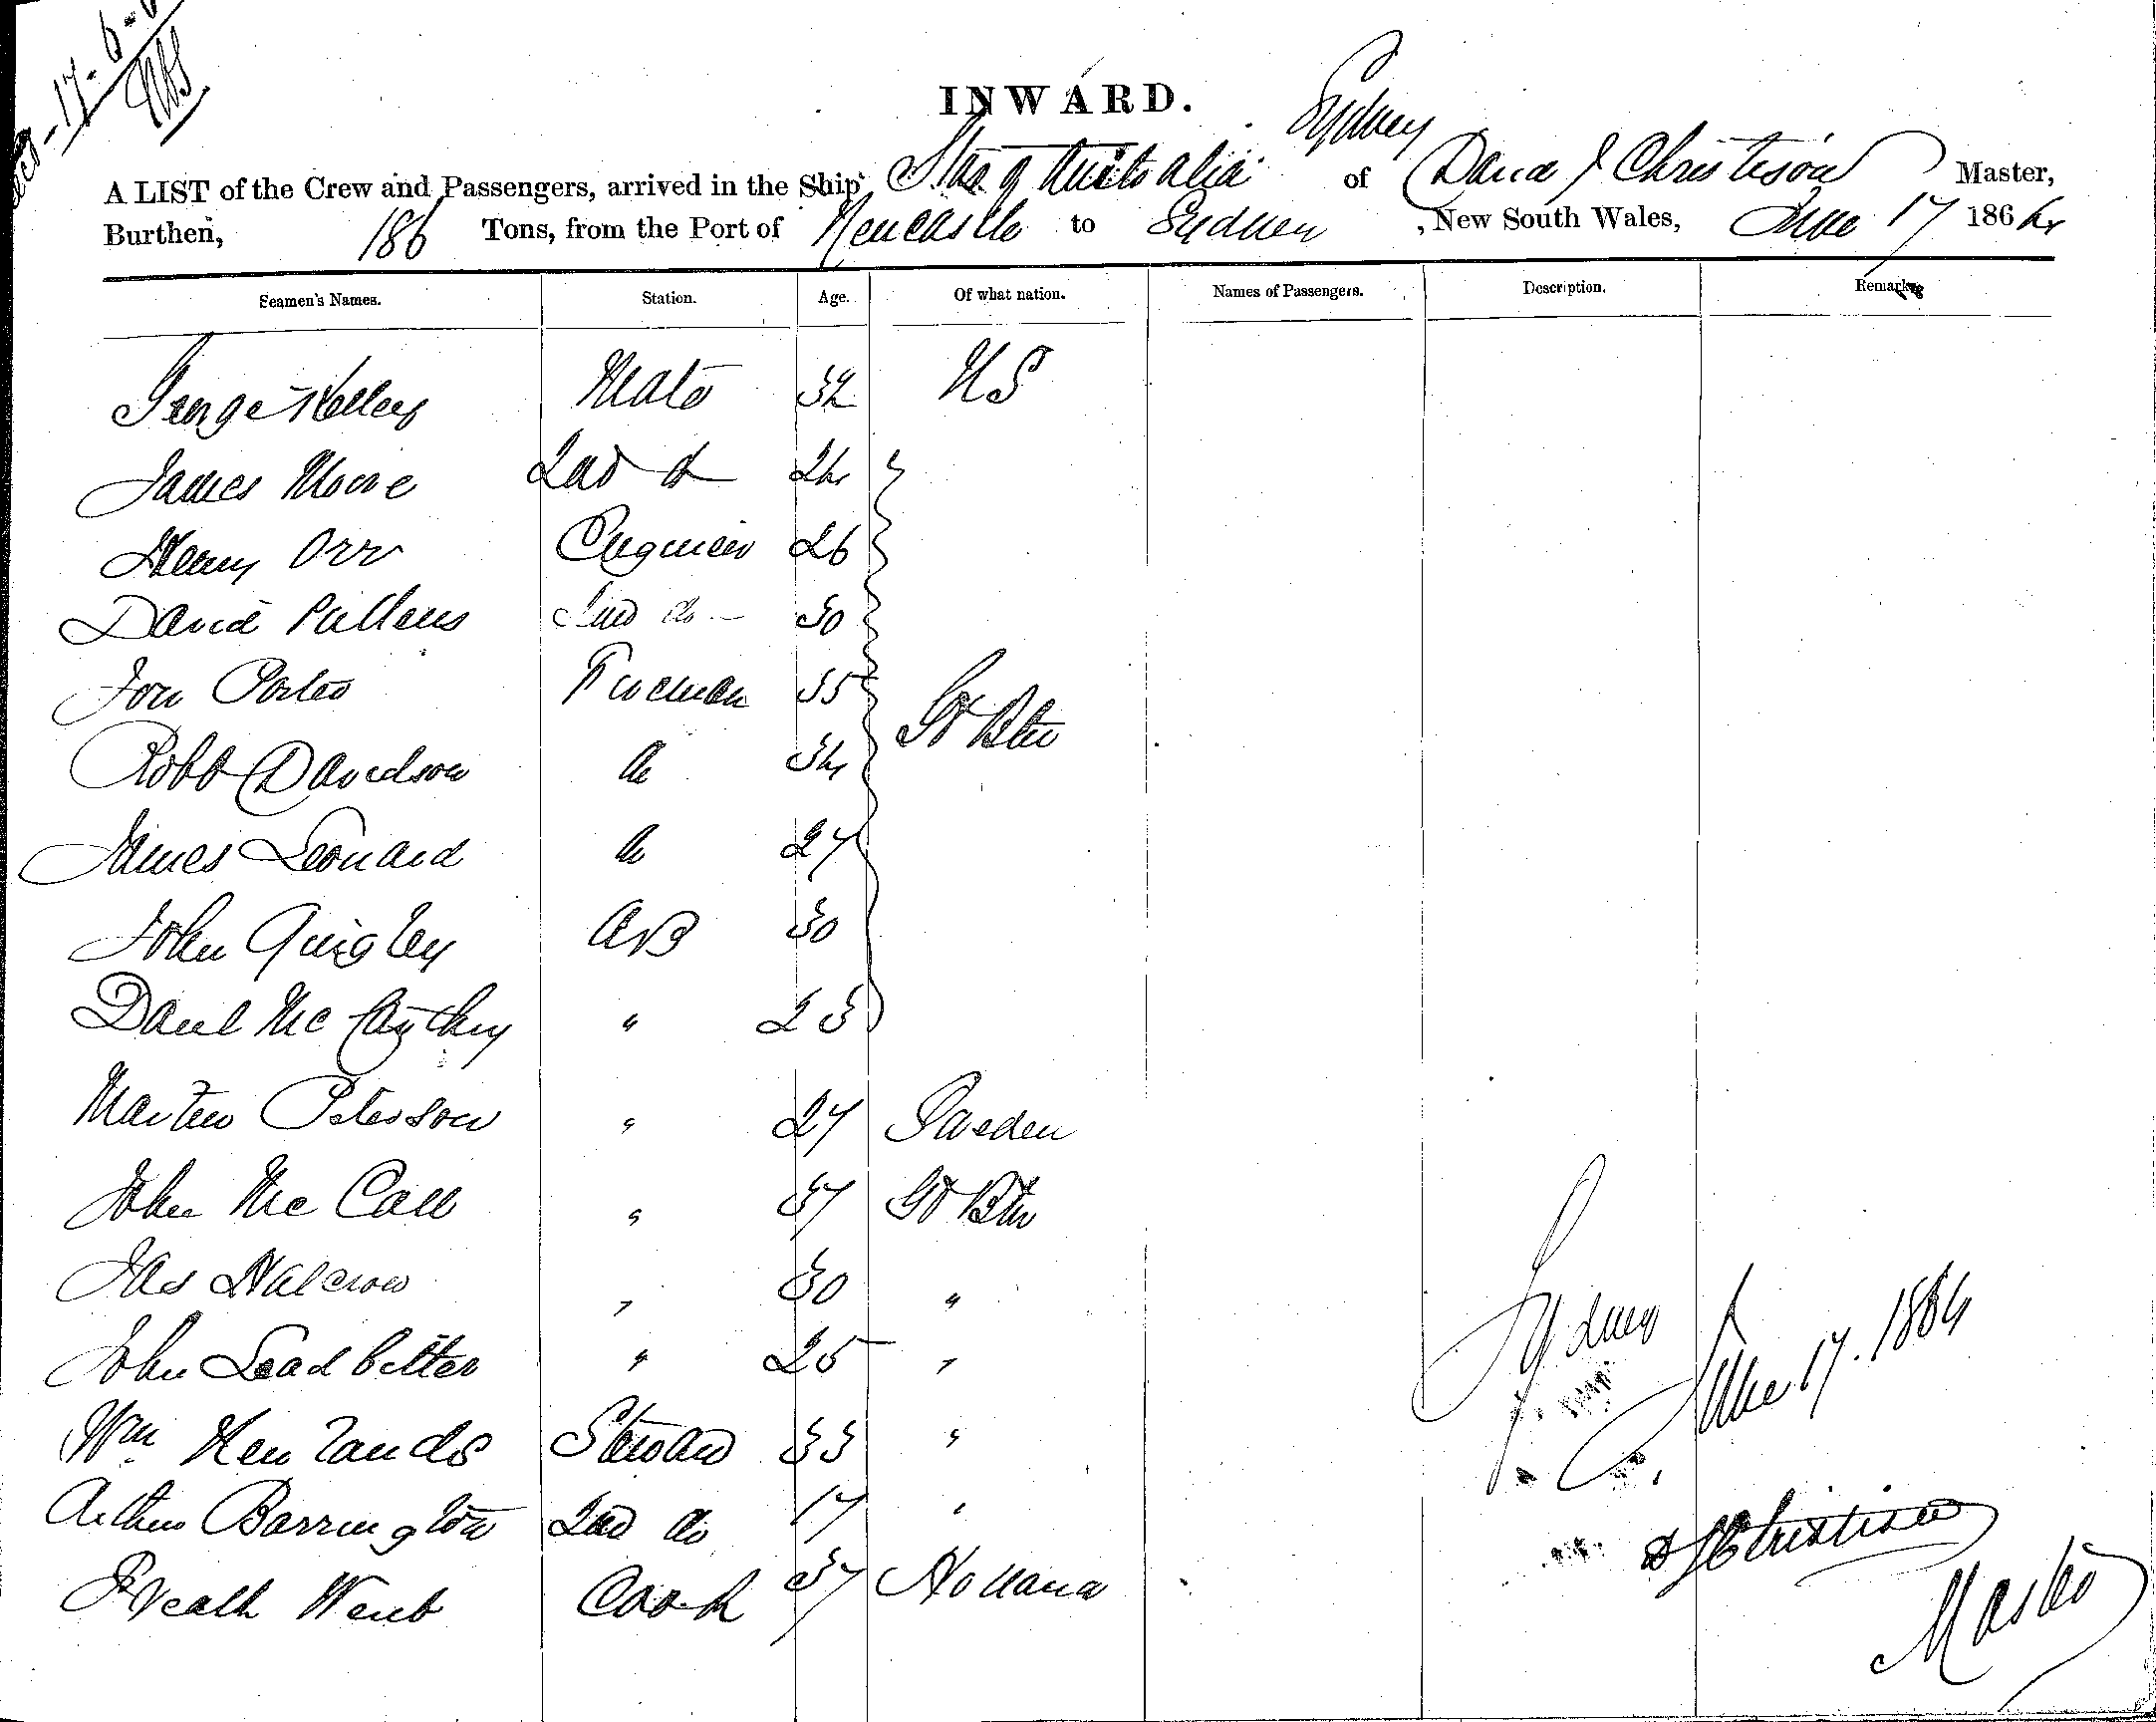 17-6-6
INWARD.
A LIST of the Crew and Passengers, arrived in the Ship Star of Australia of Sydney David J Christison Master,
Burthen, 186 Tons, from the Port of Newcastle to Sydney, New South Wales, June 17 1864
Seamen's Names. Station. Age. Of what nation. Names of Passengers. Description. Remarks
George Kelley Mate 32 US
James Moore 2nd do 24
Henry Orr Engineer 26
David Pullens 2nd do 30
Jon Porter Fireman 35 Gt Btn
Robt Davidson do 34
James Leonard do 27
John Quigley AB 30
Danl McCarthy " 23
Marten Peterson " 27 Sweden
John McCall " 37 Gt Btn
Jas Halcrow " 30 "
John Leadbetter " 25 "
Wm Newlands Steward 33 "
Arthur Barrington 2nd do 17 "
Went Cook 37 Holland
Sydney
June 17. 1864
D J Christison
Master